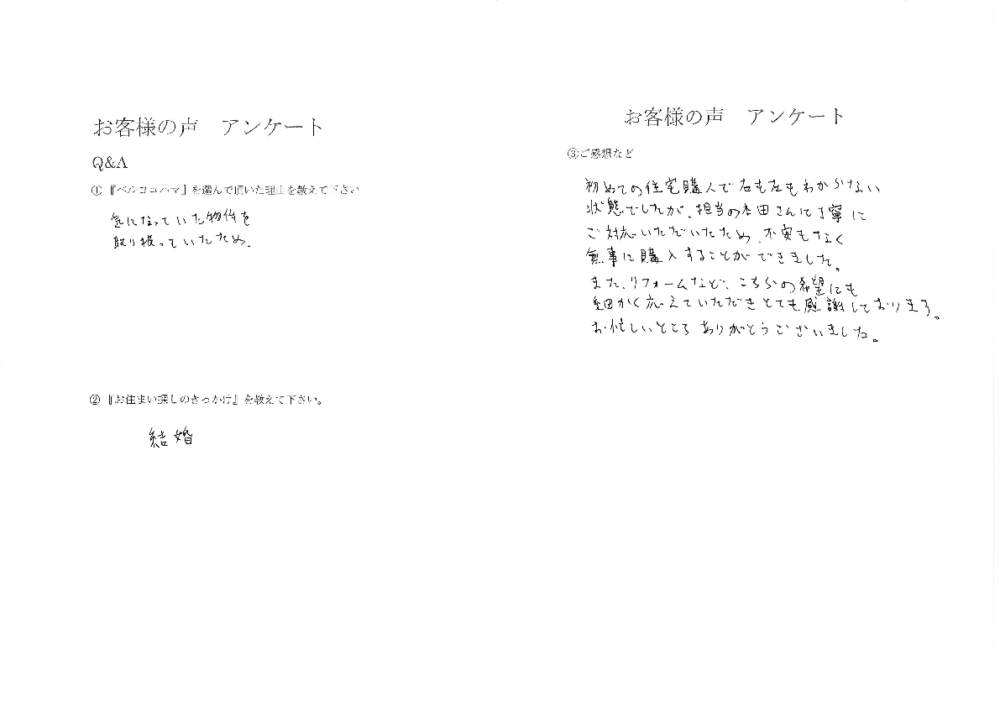 お客様の声　アンケート
Q&A
①『ベルヨコハマ』を選んで頂いた理由を教えて下さい
気になっていた物件を
取り扱っていたため.
②『お住まい探しのきっかけ』を教えて下さい。
結婚
お客様の声　アンケート
③ご感想など
初めての住宅購入で右も左もわからない
状態でしたが、担当の本田さんに丁寧に
ご対応いただいたため、不安もなく
無事に購入することができました。
また、リフォームなど、こちらの希望にも
細かく応えていただきとても感謝しております。
お忙しいところ ありがとうございました。